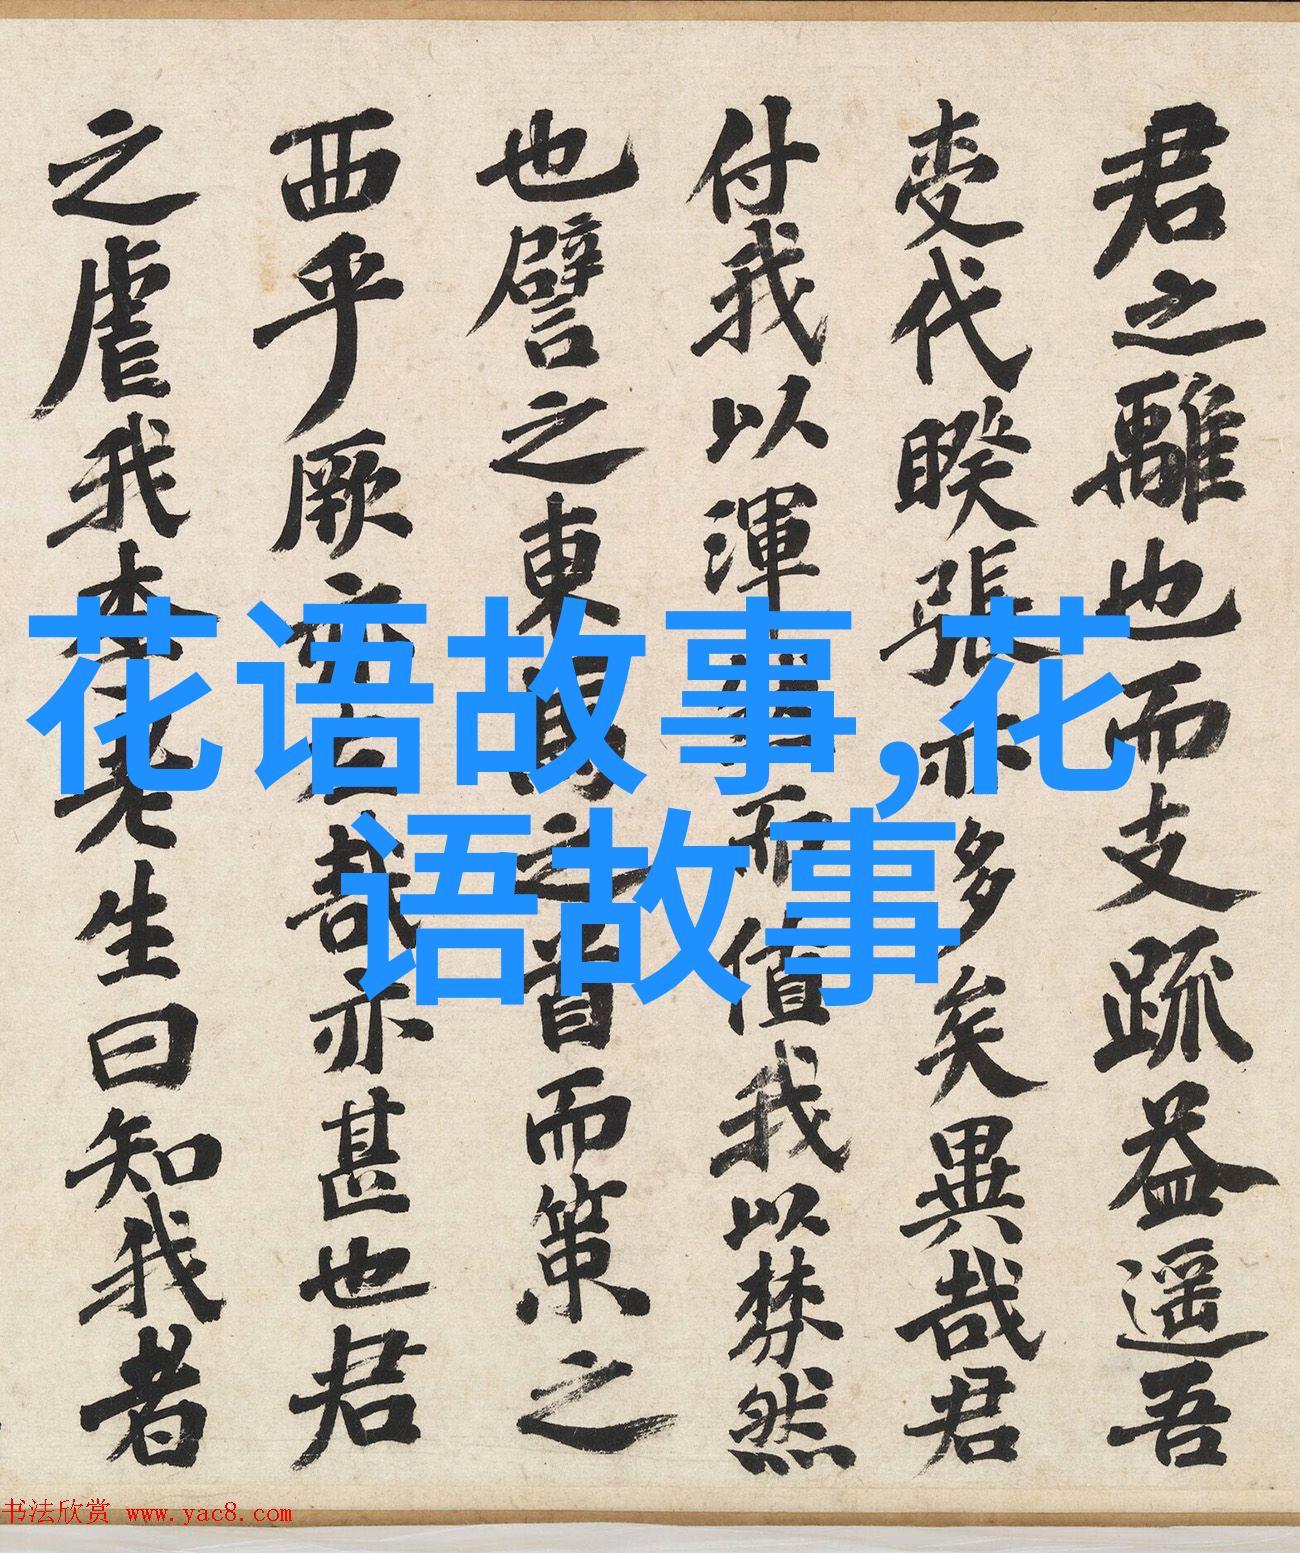 君之離也而支疏益遥吾
变代睽張亦多矣異哉君
付我以渾
而值我以棼然
也譬之東
之首而策之
西乎厥
哉亦甚也君
之虐我
生曰知我者
花语故事,花
语故事
书法欣赏 www.yac8.com